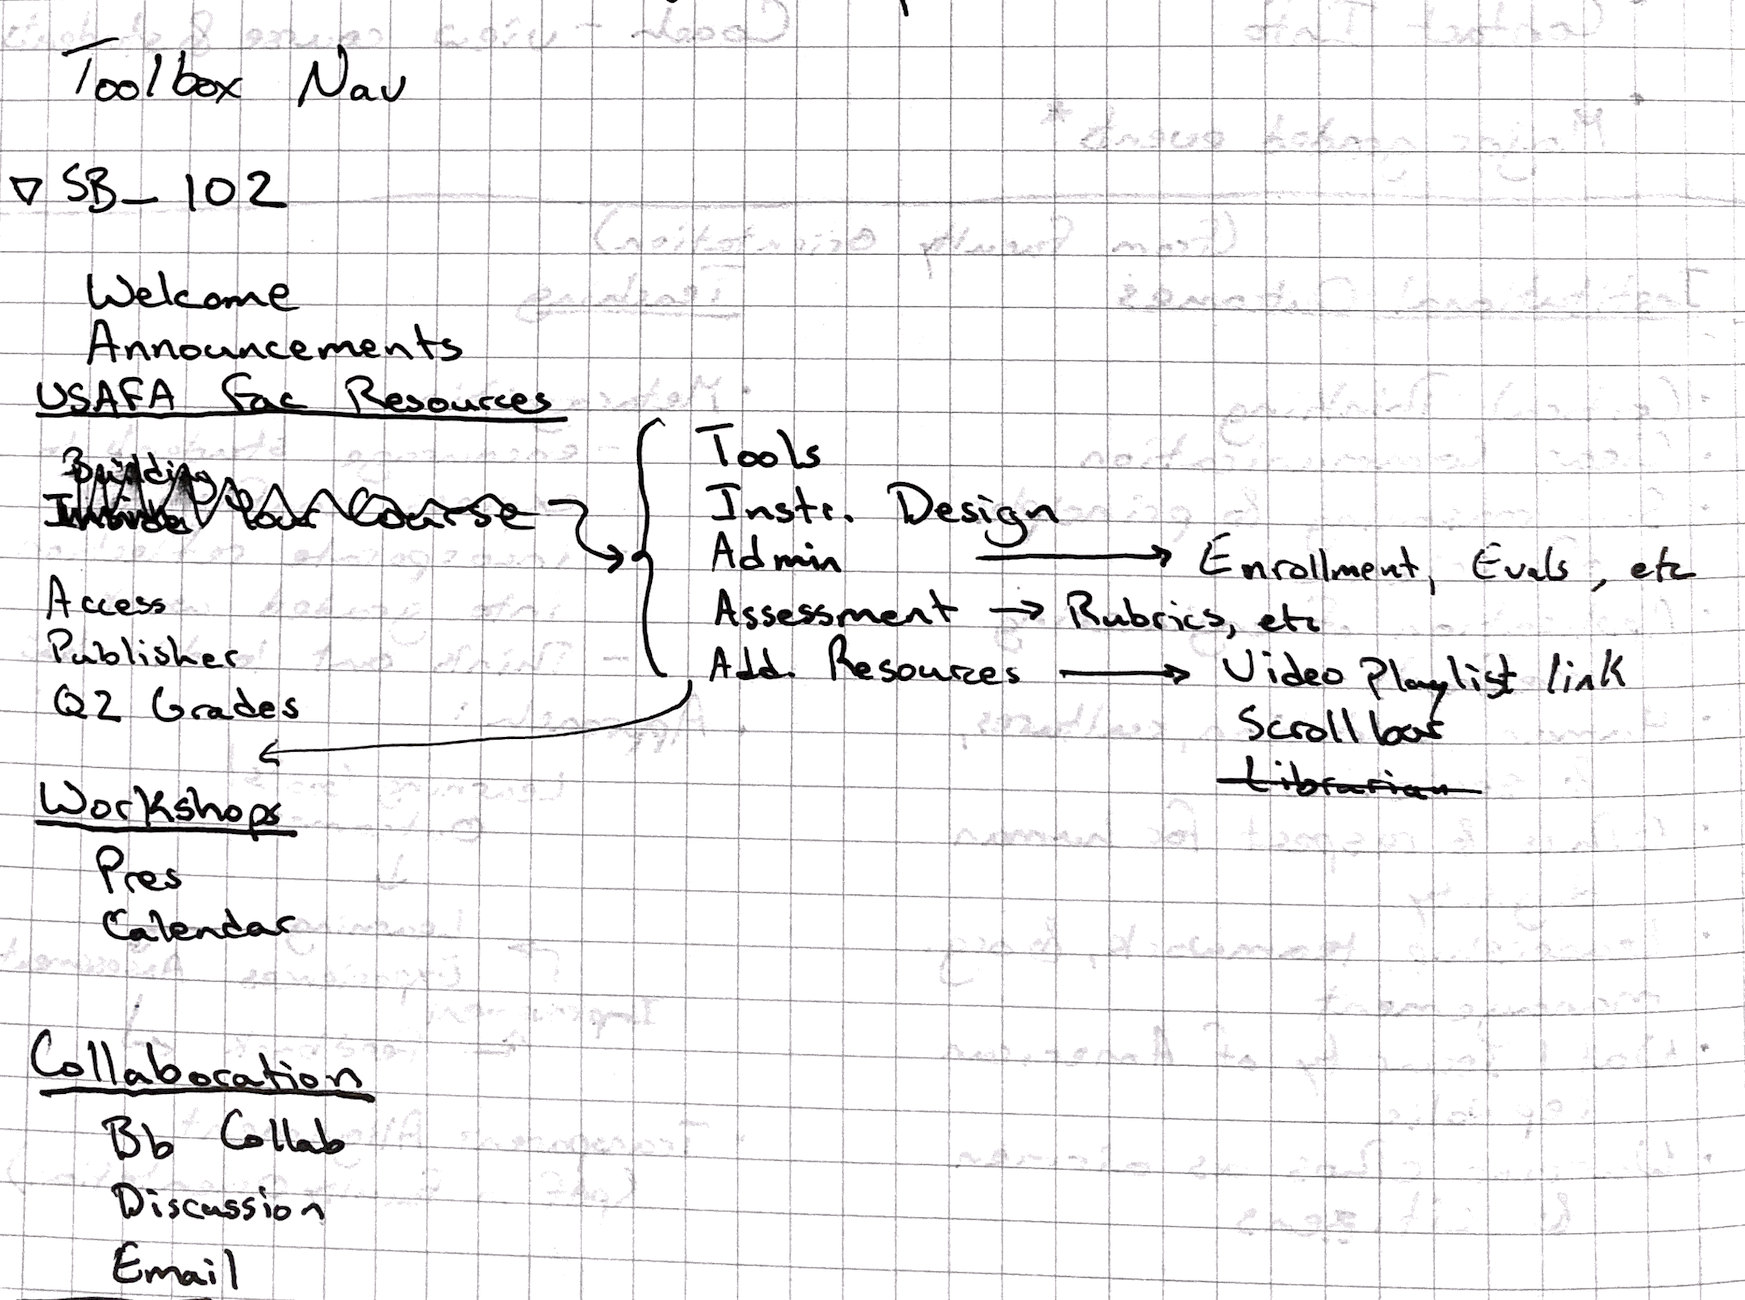 Toolbox Nav
▽ SB_102
Welcome
Announcements
USAFA Fac Resources
Building
Your Course
Tools
Instr. Design
Admin → Enrollment, Evals, etc
Assessment → Rubrics, etc
Add. Resources → Video Playlist link
Scrollbar
Librarian
Access
Publisher
Q2 Grades
Workshops
Pres
Calendar
Collaboration
Bb Collab
Discussion
Email